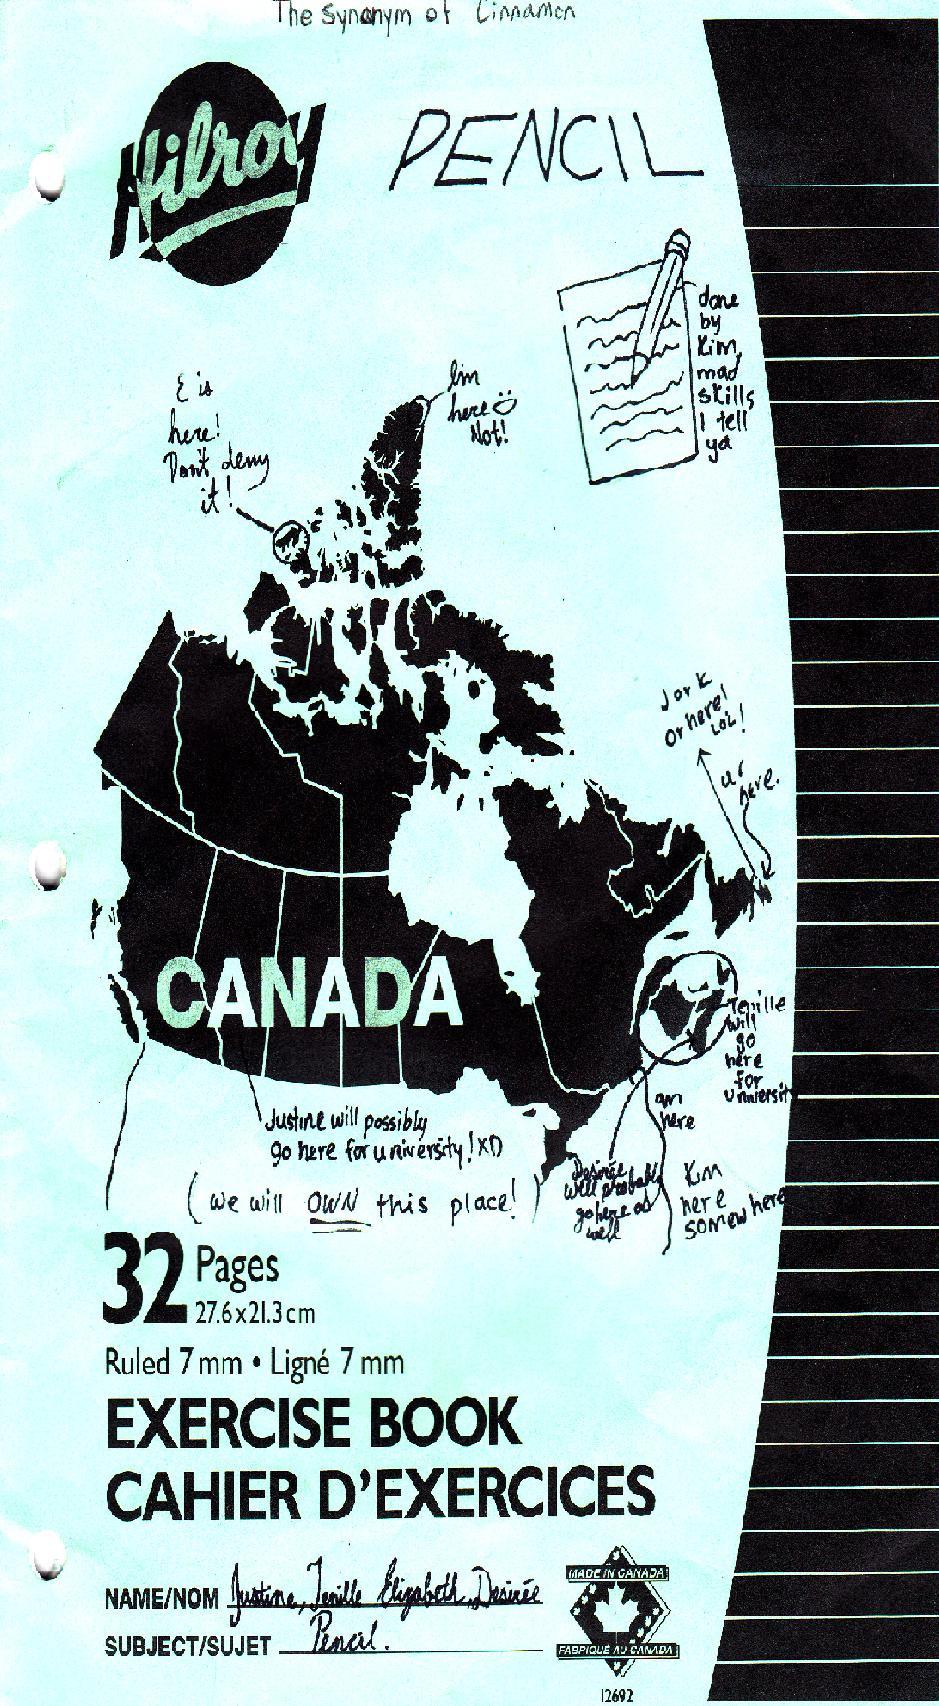 The Synonym of Cinnamon
Hilroy
PENCIL
done
by
Kim,
mad
skills
I tell
ya
E is
here!
Don't deny
it!
I'm
here
Not!
J or K
or here!
LOL!
ur
here.
CANADA
Tenille
will
go
here
for
university
am
here
Justine will possibly
go here for university! XD
(we will OWN this place!)
Desirée
will probably
go here as
well
Kim
here
somewhere
32 Pages
27.6x21.3cm
Ruled 7mm • Ligné 7mm
EXERCISE BOOK
CAHIER D'EXERCICES
NAME/NOM Justine, Tenille Elizabeth, Desirée
SUBJECT/SUJET Pencil.
MADE IN CANADA
FABRIQUÉ AU CANADA
12692